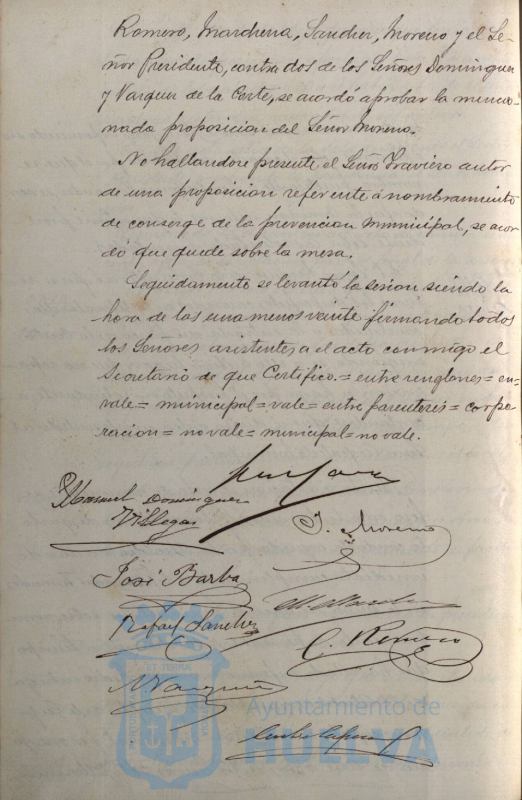 Romero, Marchena, Sanchez, Moreno y el Se-
ñor Presidente, contra dos de los Señores Dominguez
y Vazquez de la Corte, se acordó aprobar la mencio-
nada proposicion del Señor Moreno.
No hallandose presente el Señor Traviero autor
de una proposicion referente á nombramiento
de conserge de la prevencion municipal, se acor
dó que quede sobre la mesa.
Seguidamente se levantó la sesion siendo la
hora de las una menos veinte firmando todos
los Señores asistentes a el acto conmigo el
Secretario de que Certifico.= entre renglones= en-
vale= municipal= vale= entre parentesis= corpo
racion= no vale= municipal= no vale.
Manuel Dominguez
Villegas
J. Moreno
José Barba
Rafael Sanchez
C. Romero
M Vazquez
Ayuntamiento de
HUELVA